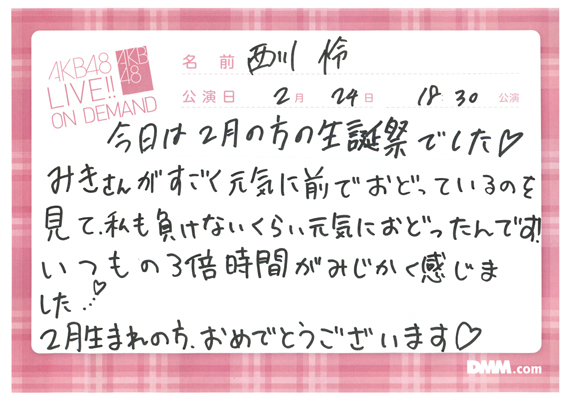 AKB48
LIVE!!
ON DEMAND
AKB
48
名前 西川 怜
公演日 2月 24日 18:30 公演
今日は2月の方の生誕祭でした♡
みきさんがすごく元気に前でおどっているのを
見て、私も負けないくらい元気におどったんです!!
いつもの3倍時間がみじかく感じま
した...♡
2月生まれの方、おめでとうございます♡
DMM.com